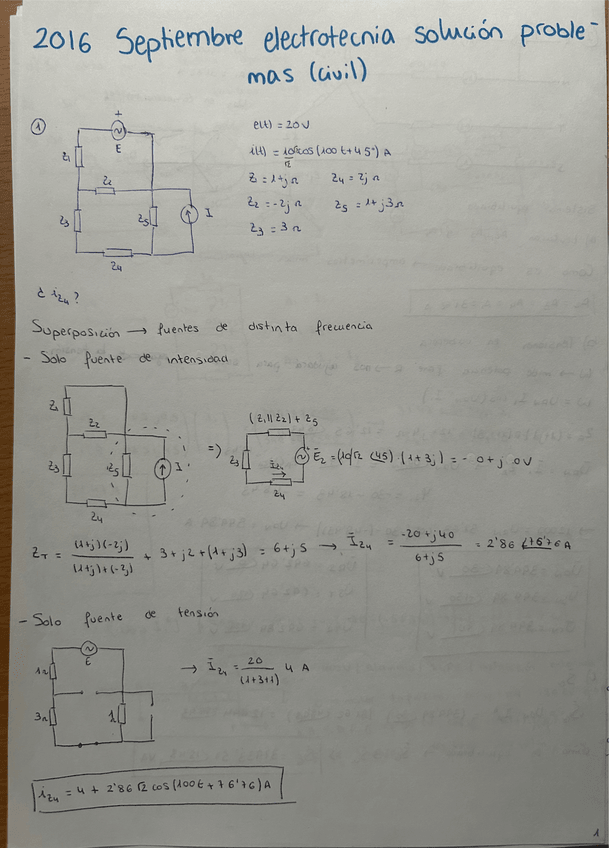 2016 Septiembre electrotecnia solución proble-
mas (civil)
①
+
E
Z1
Z2
Z3
Z5
I
Z4
e(t) = 20 V
i(t) = 10√2 cos (100t + 45°) A
Z = 1+j Ω Z4 = 2j Ω
Z2 = -2j Ω Z5 = 1+j3 Ω
Z3 = 3 Ω
¿ iZ4 ?
Superposición → fuentes de distinta frecuencia
- Solo fuente de intensidad
Z1
Z2
Z3
Z5
I
Z4
=)
(Z1 || Z2) + Z5
Z3
IZ4
Z4
E2 = (10/√2 (45) (1+3j) = - 0 + j 0 V
ZT = (1+j)(-2j) / (1+j)+(-2j) + 3 + j2 + (1+j3) = 6+j5 → IZ4 = -20+j40 / 6+j5 = 2'86 ∠76'76 A
- Solo fuente de tensión
E
1Ω
3Ω
1
→ IZ4 = 20 / (1+3+1) 4 A
iZ4 = 4 + 2'86 √2 cos (100t + 76'76) A
1